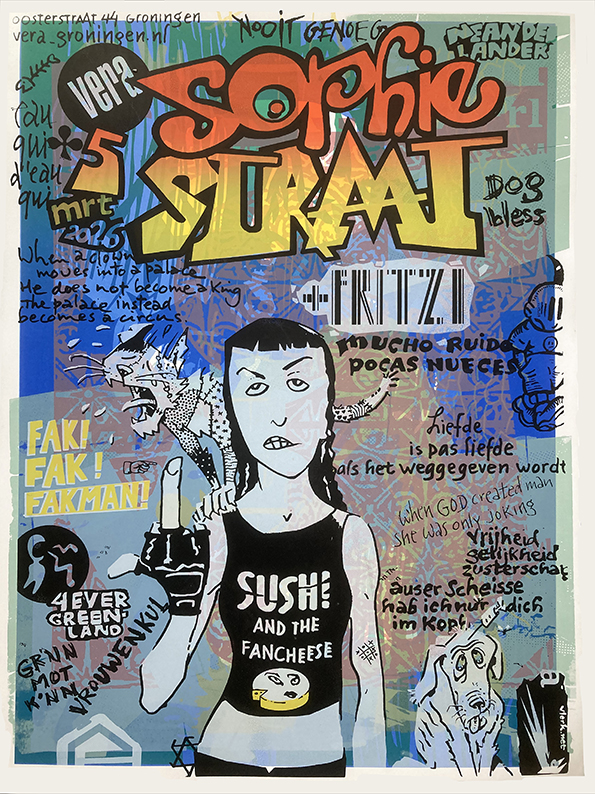 oosterstraat 44 Groningen
vera_groningen.nl
NOOIT GENOEG
NEANDE
LANDER
vera
SOPHIE
STRAAT
l'au
qui
d'eau
qui
5
mrt
2026
DOG
bless
When a clown
moves into a palace
He does not become a king
The palace instead
becomes a circus.
+FRITZI
MUCHO RUIDO
POCAS NUECES
FAK!
FAK!
FAKMAN!
Liefde
is pas liefde
als het weggegeven wordt
When GOD created man
she was only joking
vrijheid
gelijkheid
zusterschap
auser Scheisse
hab ich nur dich
im Koph
SUSHI
AND THE
FANCHEESE
4EVER
GREEN-
LAND
GR'NN
MOT
K'NN
VROUWENKUL
a
vlerk.net